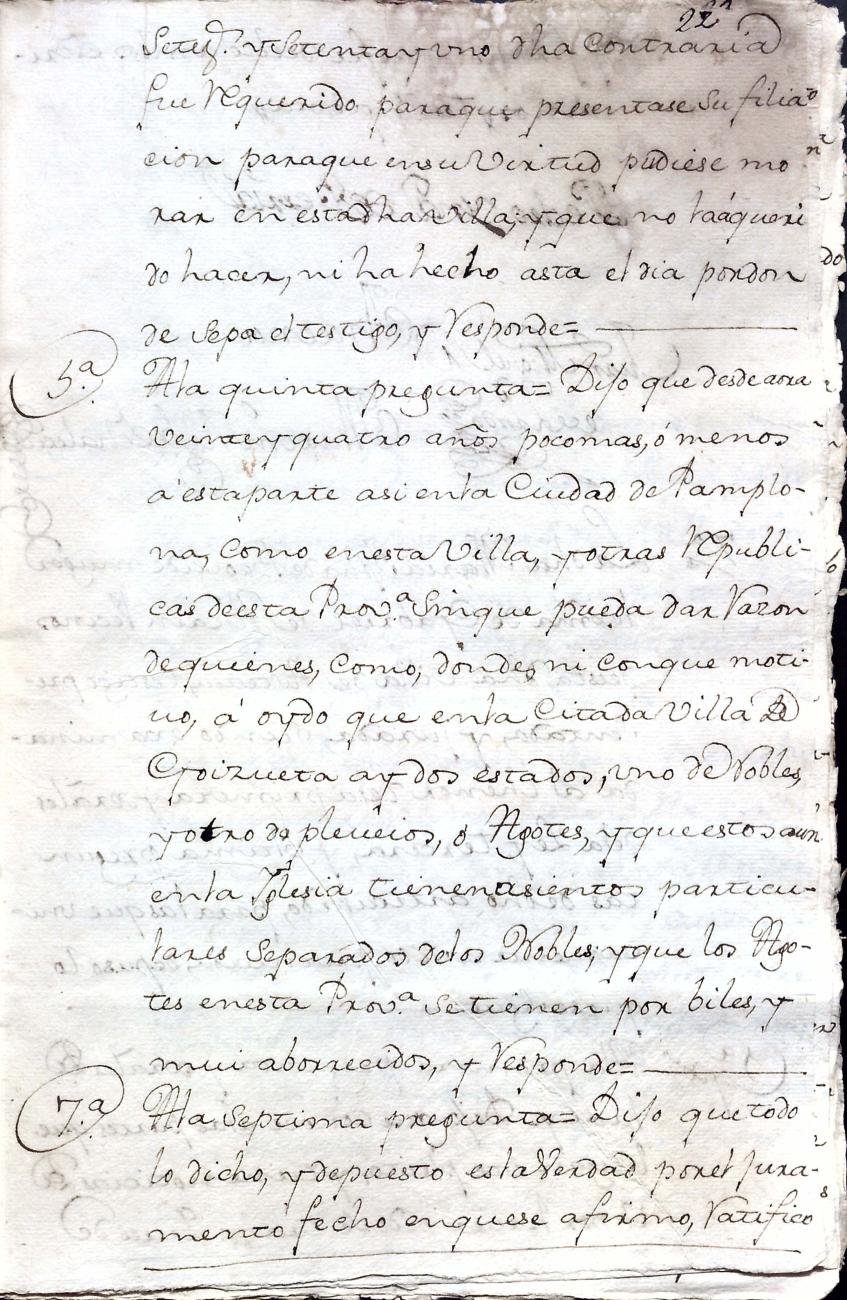 22
Setezs. y Setenta y uno dha Contraria
fue Requerido paraque presentase Su filia
cion paraque ensu Virtud pudiese mo
rar en estadha villa; yque no laáqueri
do hacer, ni ha hecho asta el dia pordon
de Sepa el testigo, y Responde=
5.a
Ala quinta pregunta= Dijo que desde aora
Veinte y quatro años pocomas, ó menos
a esta parte asi enla Ciudad de Pamplo-
na, Como enesta Villa, yotras Republi-
cas deesta Prov.a Sinque pueda dar Razon
dequienes, Como, donde, ni Conque moti-
uo, á oydo que enla Citada Villa de
Goizueta ay dos estados, uno de Nobles,
yotro de pleueios, o Agotes, y que estos aun
enla Yglesia tienen asientos particu-
lares Separados delos Nobles; yque los Ago-
tes enesta Prov.a Se tienen por biles, y
mui aborrecidos, y Responde=
7.a
Ala Septima pregunta= Dijo que todo
lo dicho, y depuesto es la Verdad porel Jura-
mento fecho enquese afirmo, Ratifico